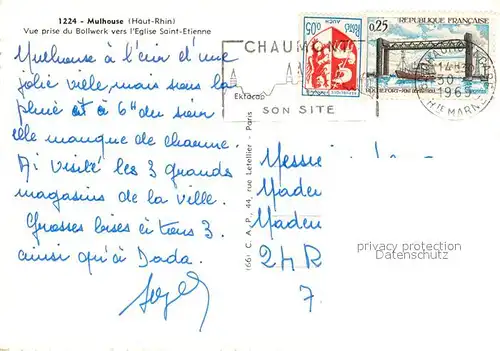 1224 - Mulhouse (Haut-Rhin)
Vue prise du Bollwerk vers l'Eglise Saint-Etienne
Mulhouse à l'air d'une
jolie ville, mais sous la
pluie et à 6h du soir
elle manque de charme.
Ai visité les 3 grands
magasins de la ville.
Grosses bises à tous 3.
ainsi qu'à Dada.
CHAUMONT
Ektacap
SON SITE
0,05
AUCH
0,25
REPUBLIQUE FRANÇAISE
14H30
30
196
HTE MARNE
C. A. P., 44, rue Letellier - Paris
Messie
Madem
Madem
24 R
7.
privacy protection
Datenschutz